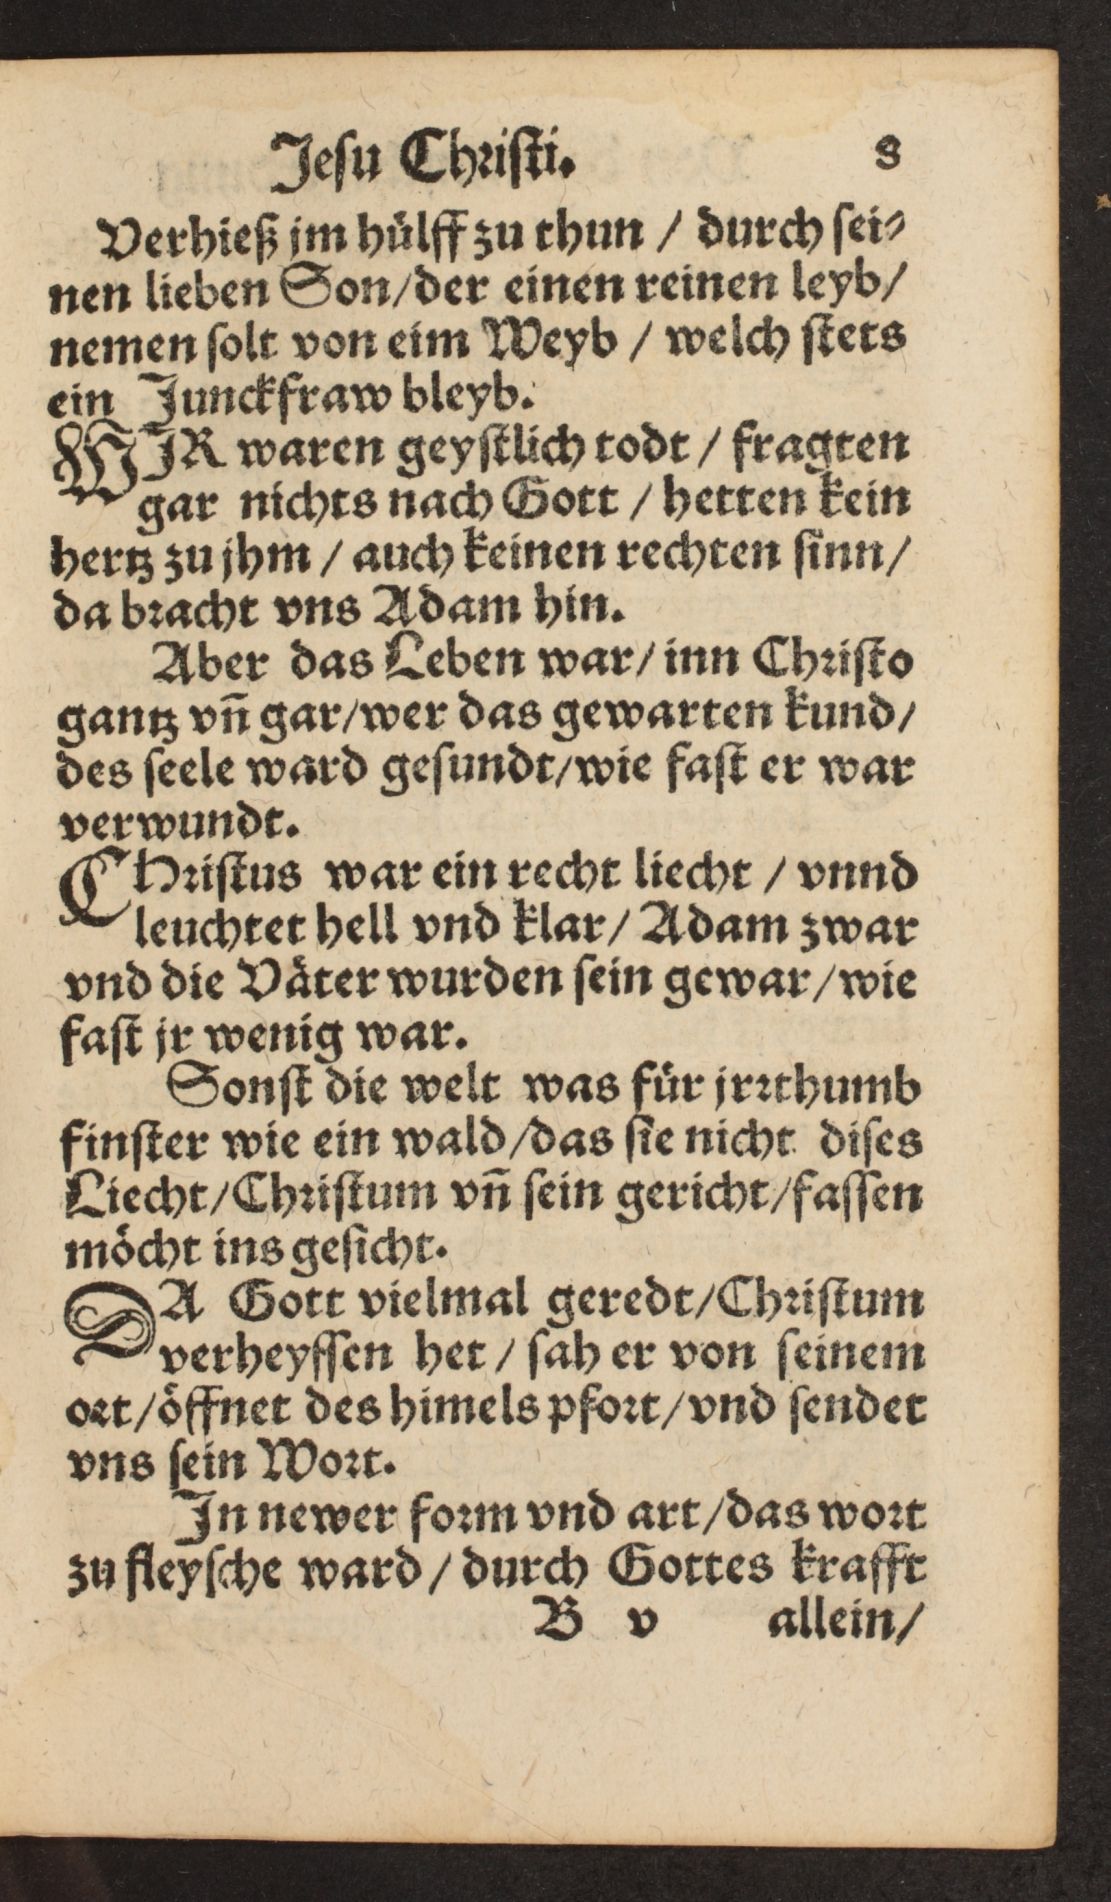 Jeſu Chꝛiſti. 8
Verhieß jm hülff zu thun / durch ſei⸗
nen lieben Son/der einen reinen leyb/
nemen ſolt von eim Weyb / welch ſtets
ein Junckfraw bleyb.
WJR waren geyſtlich todt / fragten
gar nichts nach Gott / hetten kein
hertz zu jhm / auch keinen rechten ſinn/
da bꝛacht vns Adam hin.
Aber das Leben war/ inn Chꝛiſto
gantz vñ gar/wer das gewarten kund/
des ſeele ward geſundt/wie faſt er war
verwundt.
CHꝛiſtus war ein recht liecht / vnnd
leuchtet hell vnd klar/ Adam zwar
vnd die Väter wurden ſein gewar/wie
faſt jr wenig war.
Sonſt die welt was für jrꝛthumb
finſter wie ein wald/das ſie nicht diſes
Liecht/Chꝛiſtum vñ ſein gericht/faſſen
möcht ins geſicht.
DA Gott vielmal geredt/Chꝛiſtum
verheyſſen het / ſah er von ſeinem
oꝛt/öffnet des himels pfoꝛt/vnd ſendet
vns ſein Woꝛt.
Jn newer foꝛm vnd art/das woꝛt
zu fleyſche ward / durch Gottes krafft
B v allein/